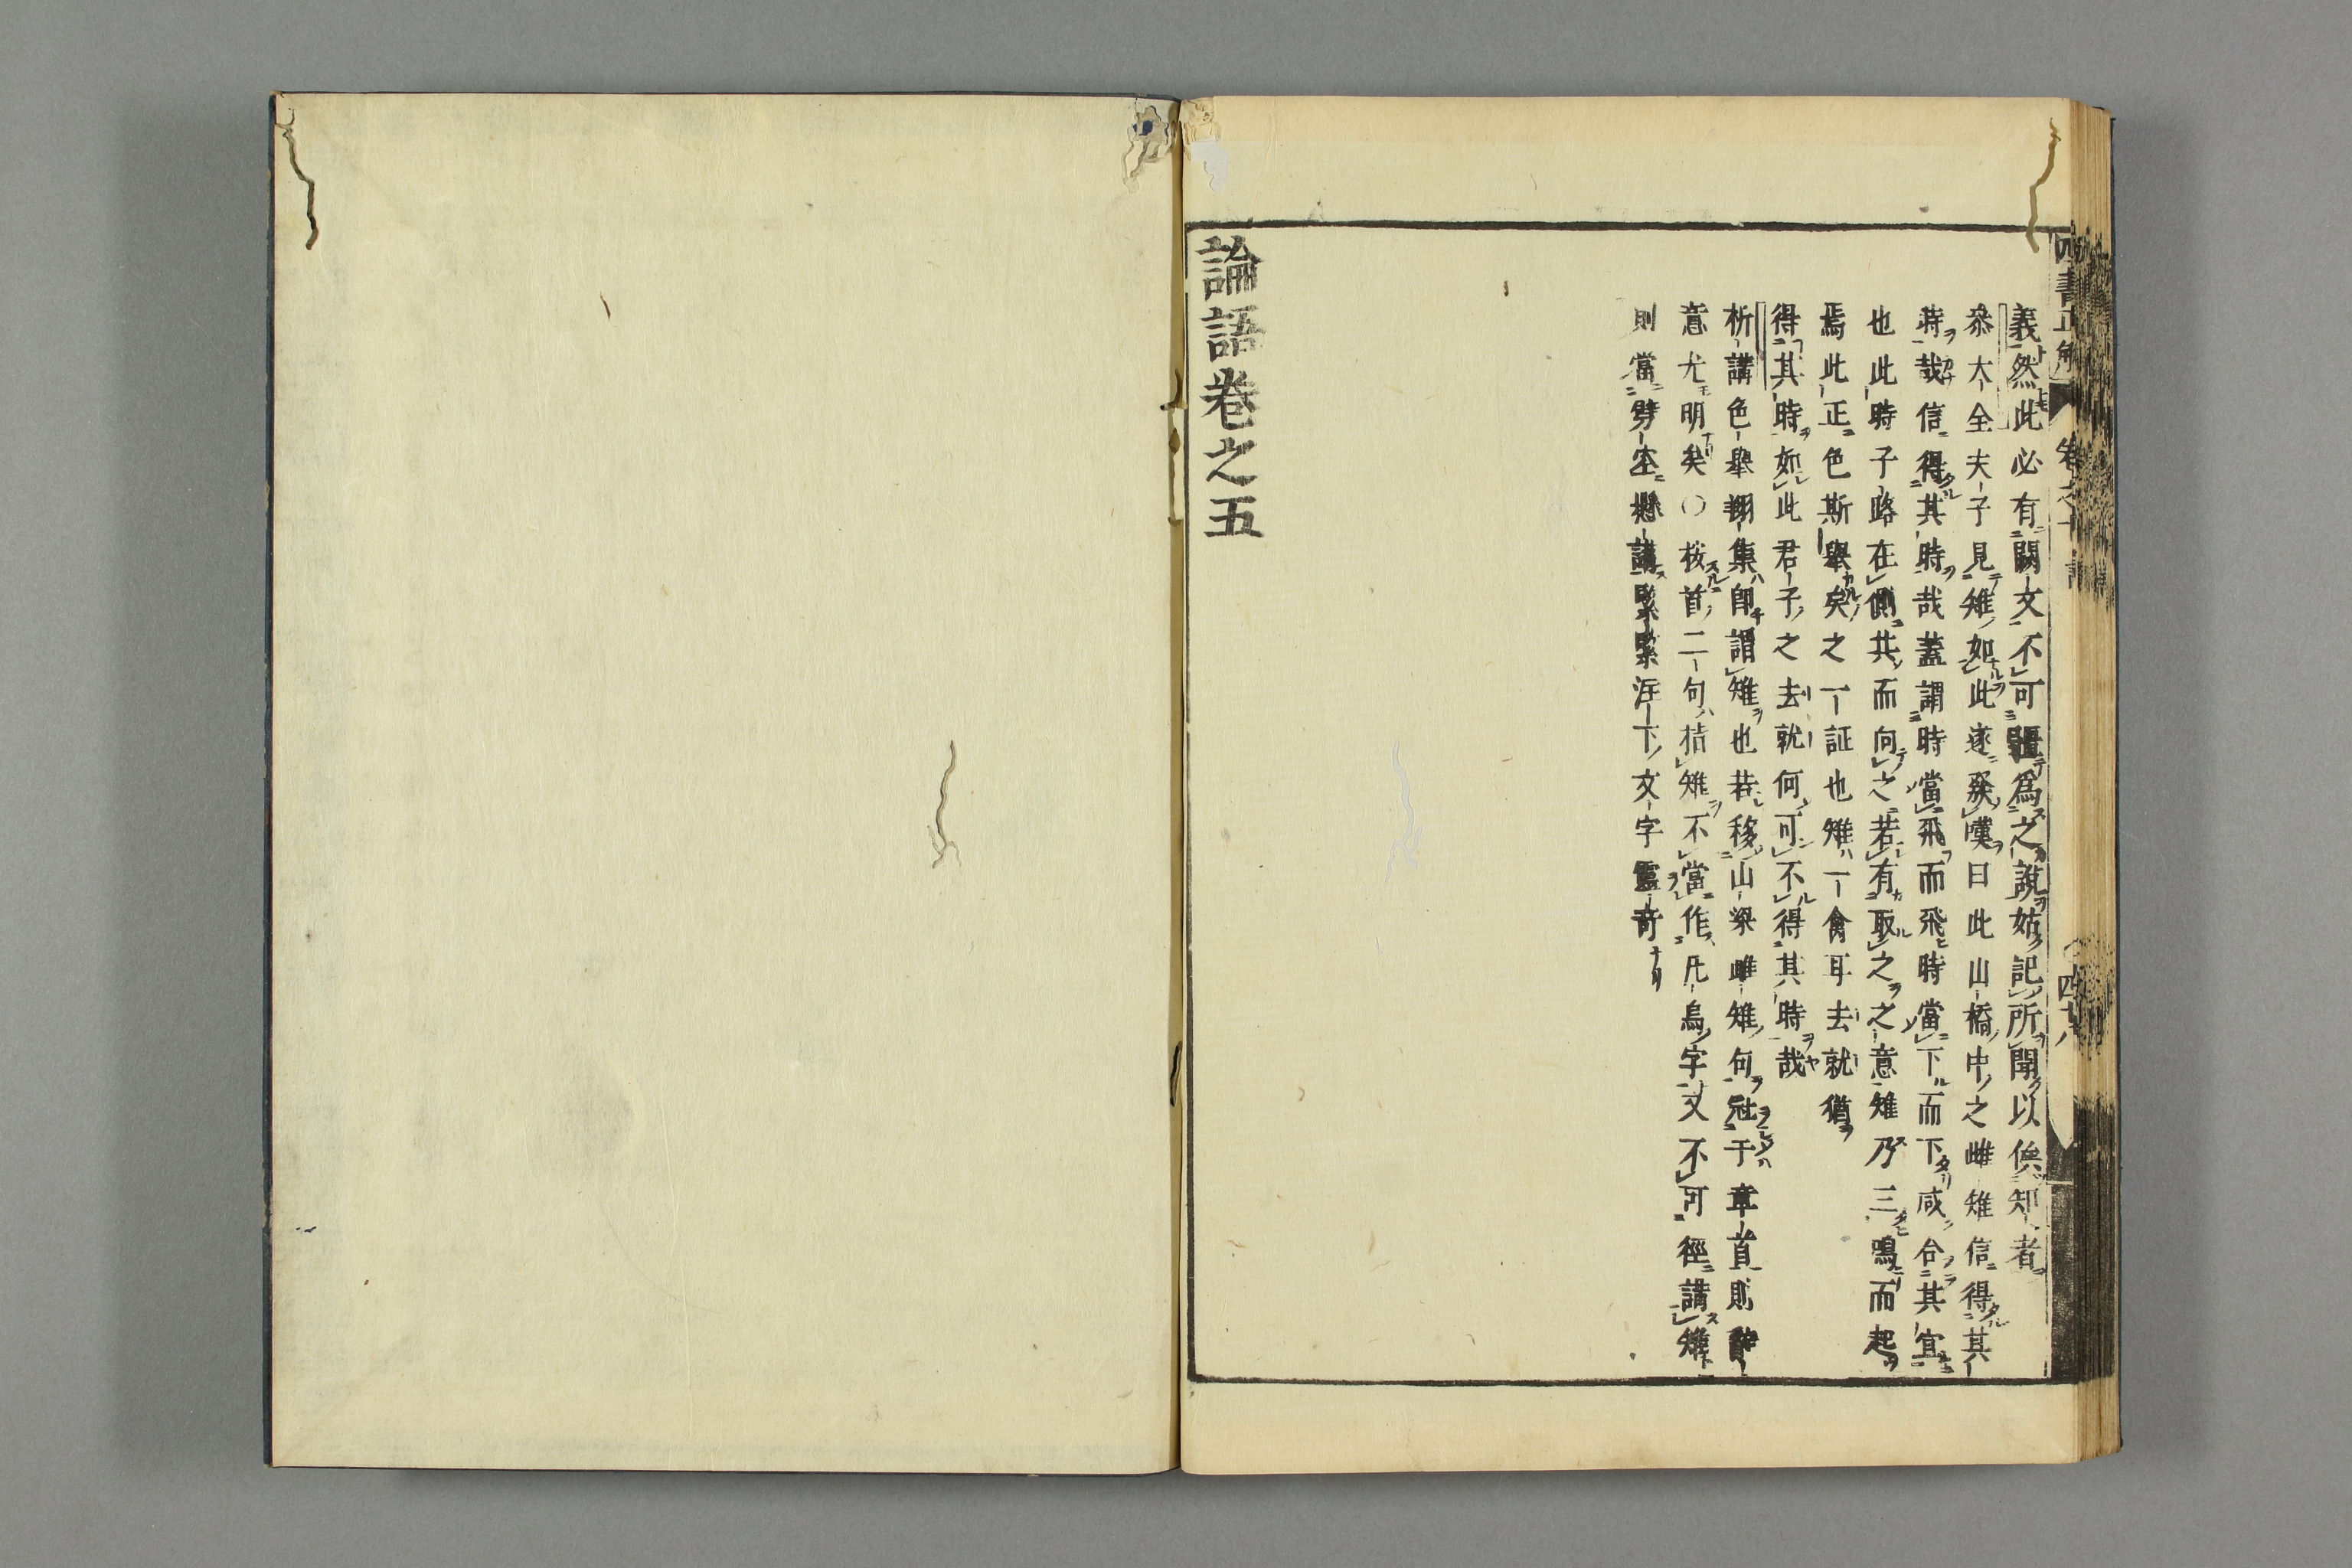 義然此必有闕文不可彊爲之說姑記所聞以俟知者
叅大全夫子見雉如此遂發嘆曰此山橋中之雌雉信得其
時哉信得其時哉蓋謂時當飛而飛時當下而下咸合其宜
也此時子路在側共而向之若有取之之意雉乃三鳴而起
焉此正色斯舉矣之一証也雉一禽耳去就猶
得其時如此君子之去就何可不得其時哉
析講色舉翔集卽謂雉也若移山梁雌雉句冠于章首則
意尤明矣〇按首二句指雉不當作凡鳥字文不可徑講雉
則當劈空懸講緊緊注下文字靈奇
論語卷之五
四書正解 卷之十 四十八